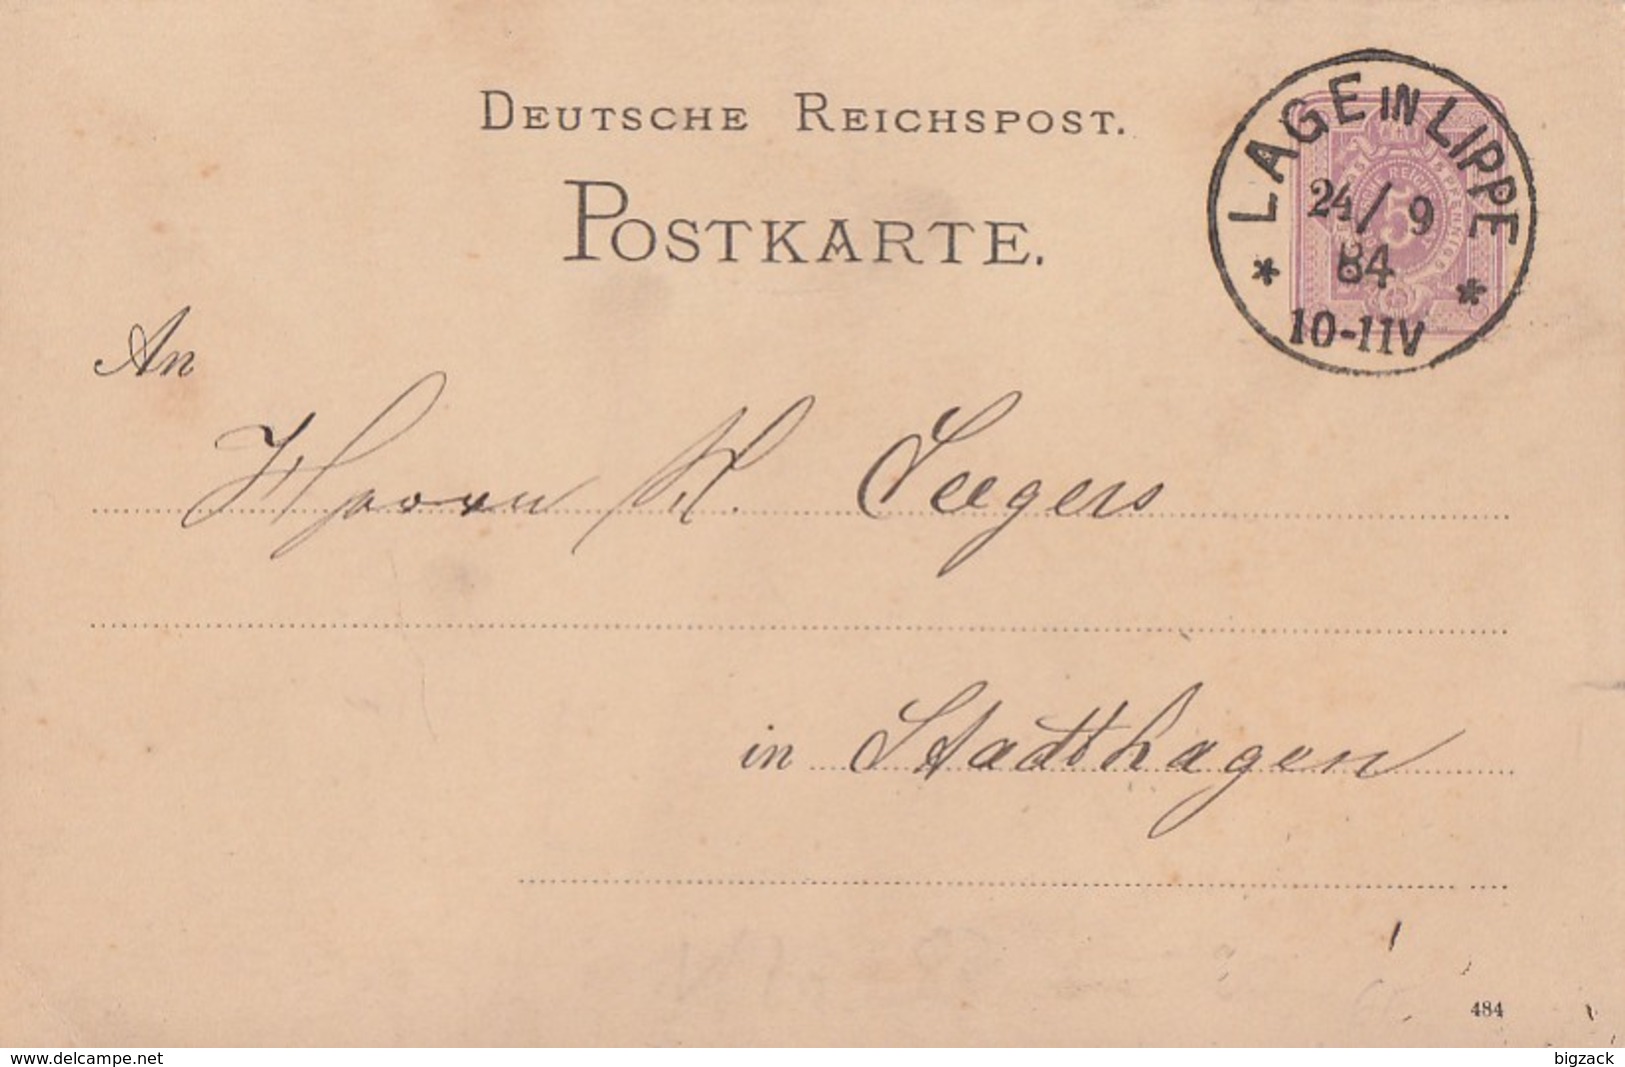 DEUTSCHE REICHSPOST.
POSTKARTE.
LAGE IN LIPPE
24/9
84
10-11V
An
Herrn H. Seegers
in Stadthagen
484
www.delcampe.net
bigzack